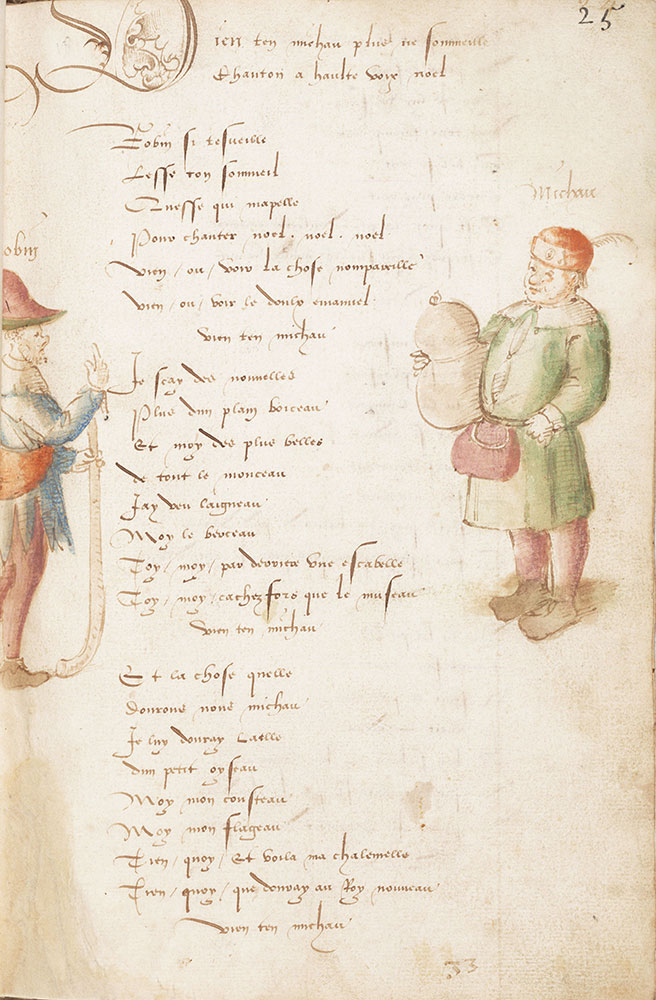 25
Vien ten michau plus ne sommeille
Chanton a haulte voix noel
Robin si tesueille
Lesse ton sommeil
Quesse qui mapelle
Pour chanter noel . noel . noel
Vien / ou / voir la chose nompareille
Vien / ou / voir le doulx emanuel
Vien ten michau
Michau
obin
Je scay des nouuelles
Plus dun plain boiceau
Et moy des plus belles
de tout le monceau
Jay veu laigneau
Moy le berceau
Toy / moy / par derriere vne escabelle
Toy / moy / cachez fors que le museau
Vien ten michau
Et la chose quelle
donrons nous michau
Je luy douray laelle
dun petit oyseau
Moy mon cousteau
Moy mon flageau
Tien / quoy / Et voila ma chalemelle
Tien / quoy / que donray au Roy nouueau
Vien ten michau
33